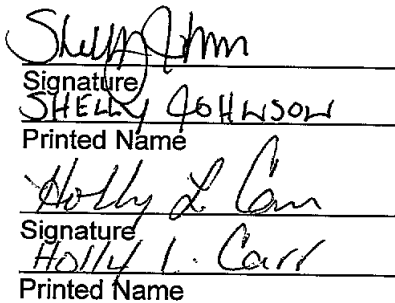 Shelly Johnson
Signature
SHELLY JOHNSON
Printed Name
Holly L Carr
Signature
Holly L. Carr
Printed Name